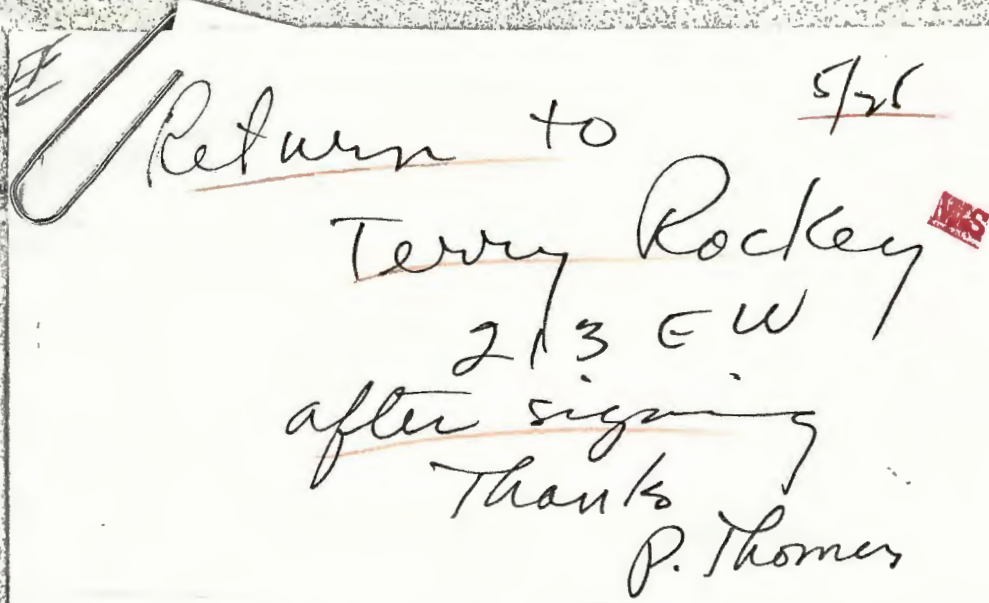 5/25
Return to
Terry Rockey
213 EW
after signing
Thanks
P. Thomas